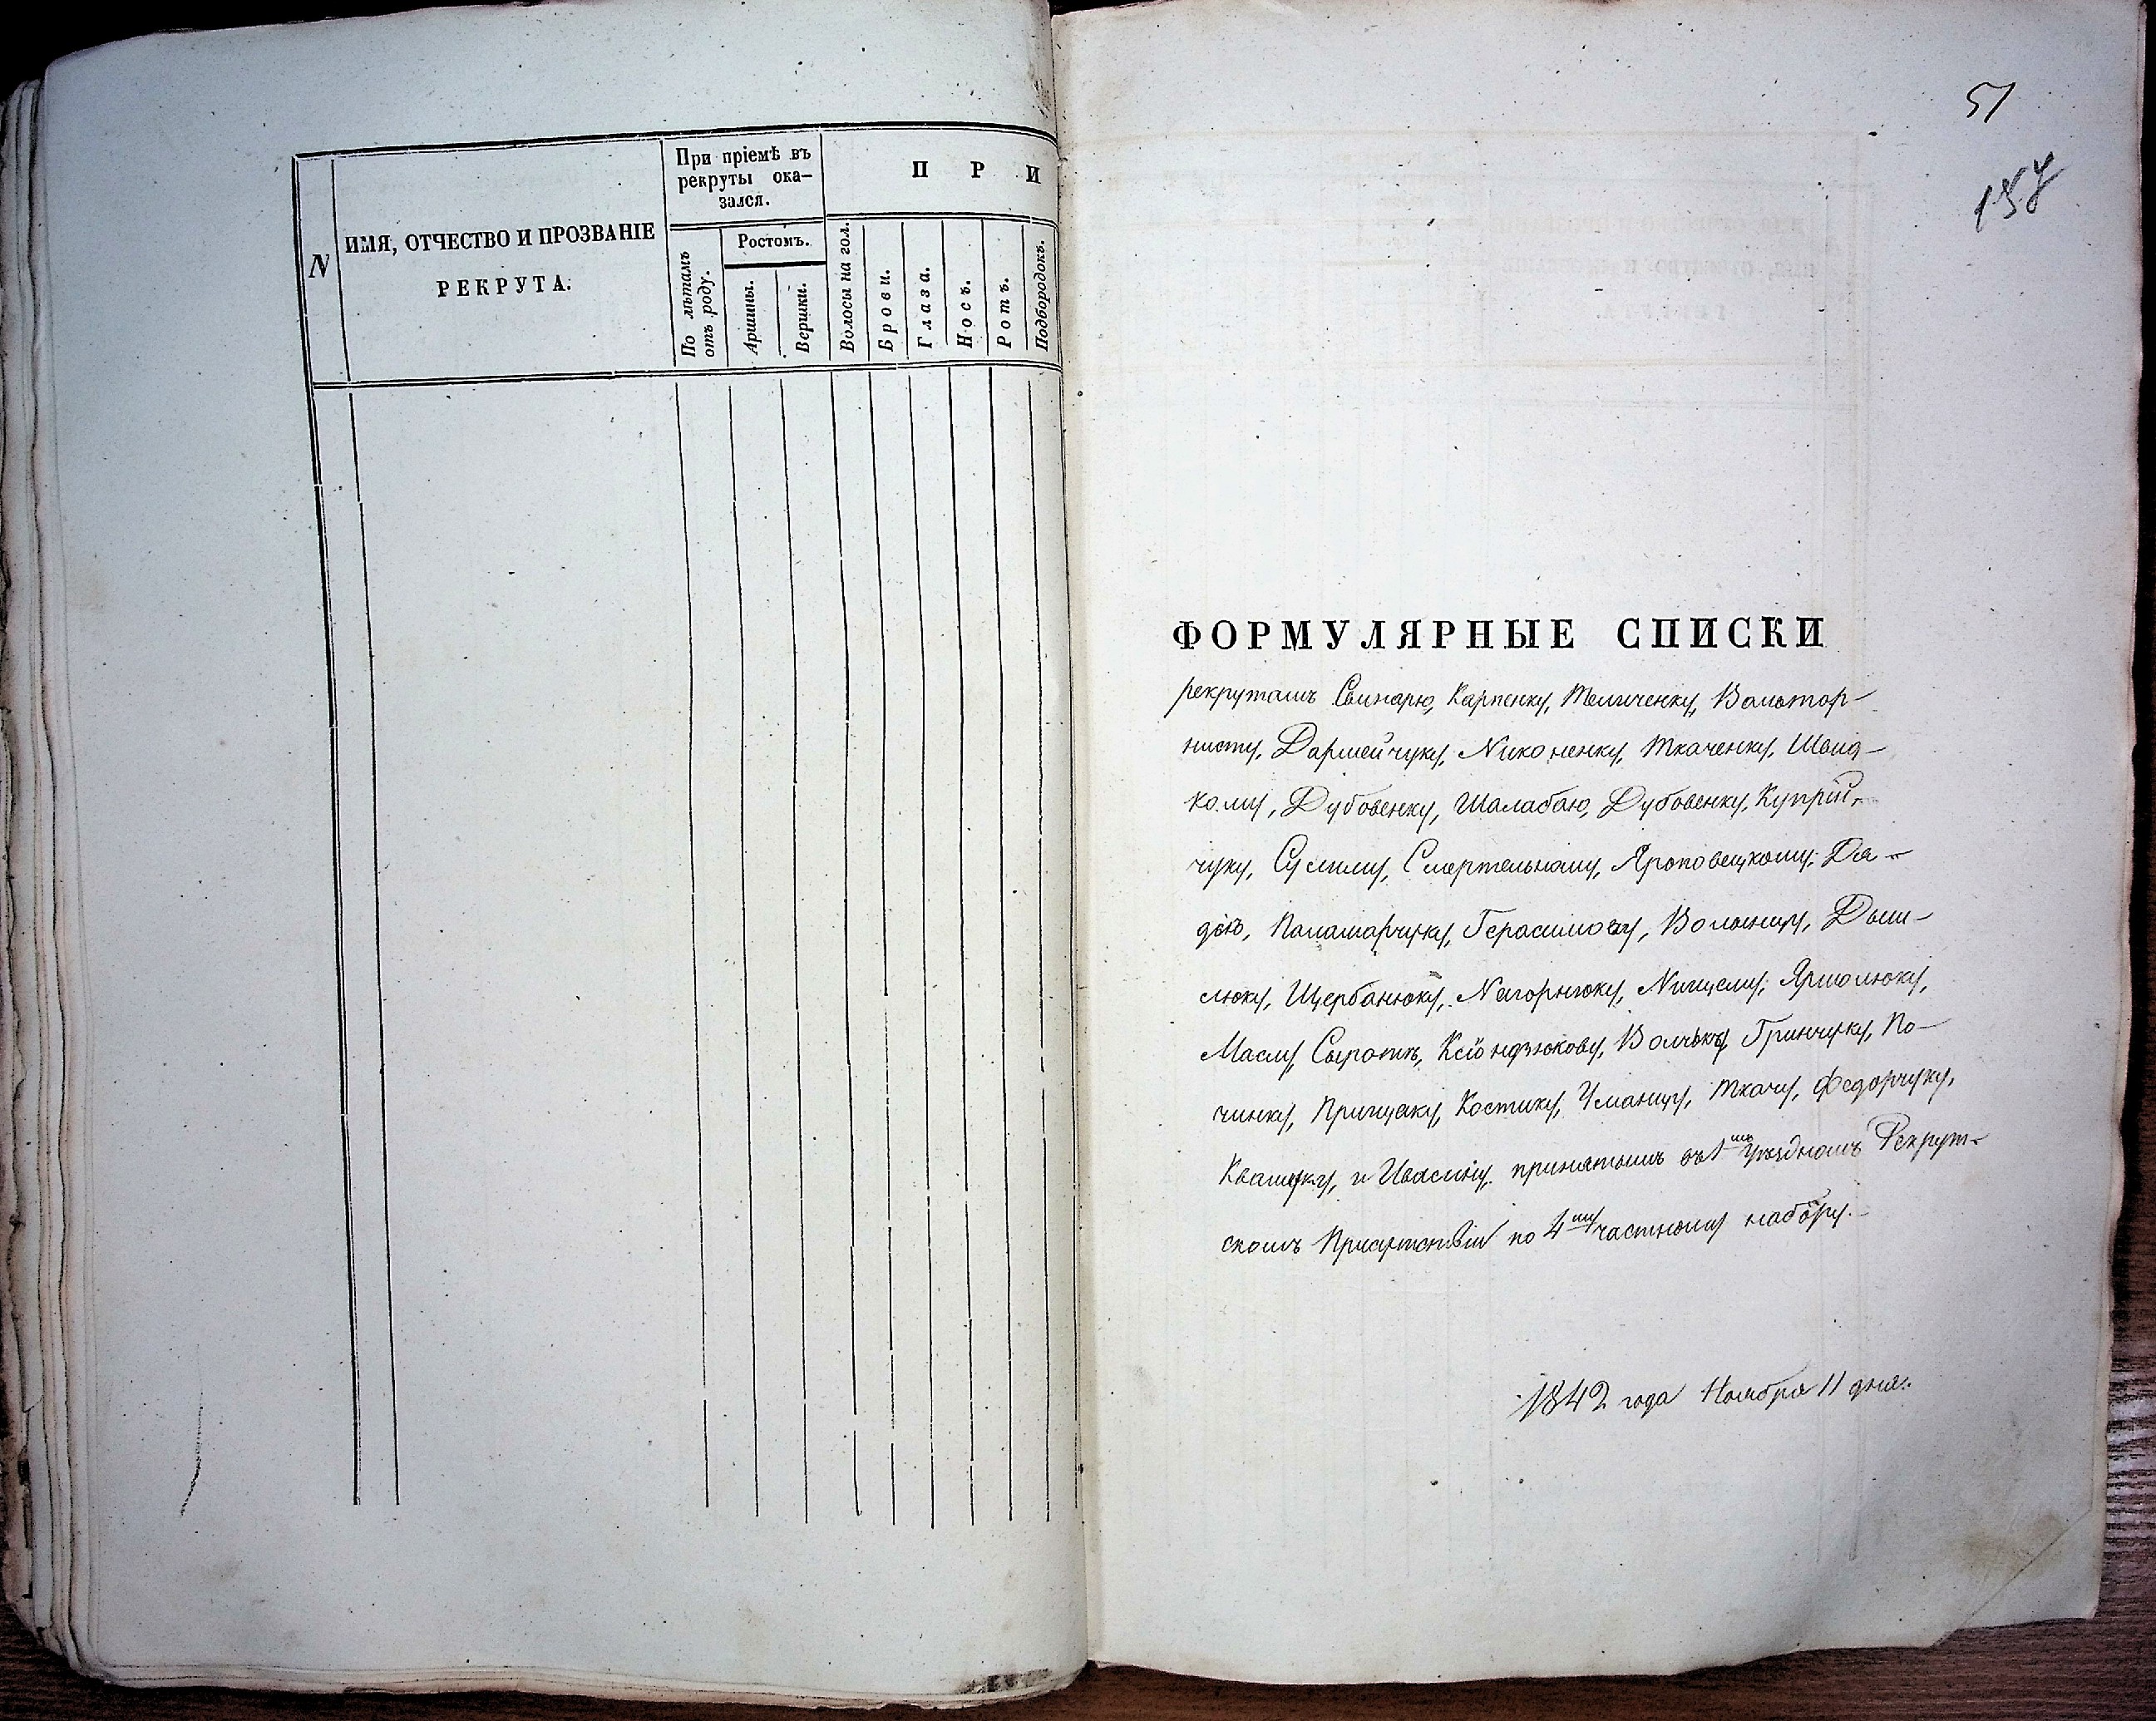 N
ИМЯ, ОТЧЕСТВО И ПРОЗВАНІЕ
РЕКРУТА.
При пріемѣ въ
рекруты ока-
зался.
По лѣтамъ
отъ роду.
Ростомъ.
Аршины.
Вершки.
П Р И
Волосы на гол.
Брови.
Глаза.
Носъ.
Ротъ.
Подбородокъ.
51
157
ФОРМУЛЯРНЫЕ СПИСКИ
рекрутамъ Свинарю, Карпенку, Теличенку, Валтор-
нисту, Дармейчуку, Никоненку, Ткаченку, Швид-
кому, Дубовенку, Шалабаю, Дубовенку, Купрій-
чуку, Сумилу, Смертельному, Яроповецкому, Дя-
дѣю, Паламарчуку, Герасимову, Волынцу, Дыш-
люку, Щербанюку, Нагорнюку, Нищему, Ярмолюку,
Маслу, Сыротѣ, Ксіондзюкову, Волчку, Гринчуку, По-
чинку, Прищаку, Костику, Уманцу, Ткачу, Федорчуку,
Квашуку, и Ивасину. принятымъ въ 1мъ Уѣздномъ Рекрут-
скомъ Присутствіи по 4му частному набору.
1842 года Ноября 11 дня.